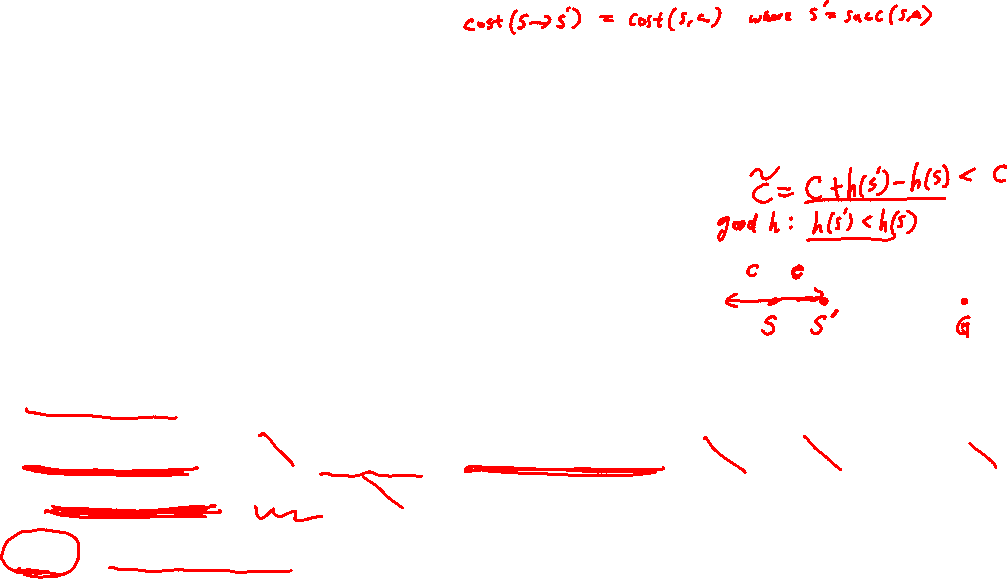 cost(s→s') = cost(s,a) where s'=succ(s,a)
c̃ = c+h(s')-h(s) < c
good h: h(s')<h(s)
c c
s s' G